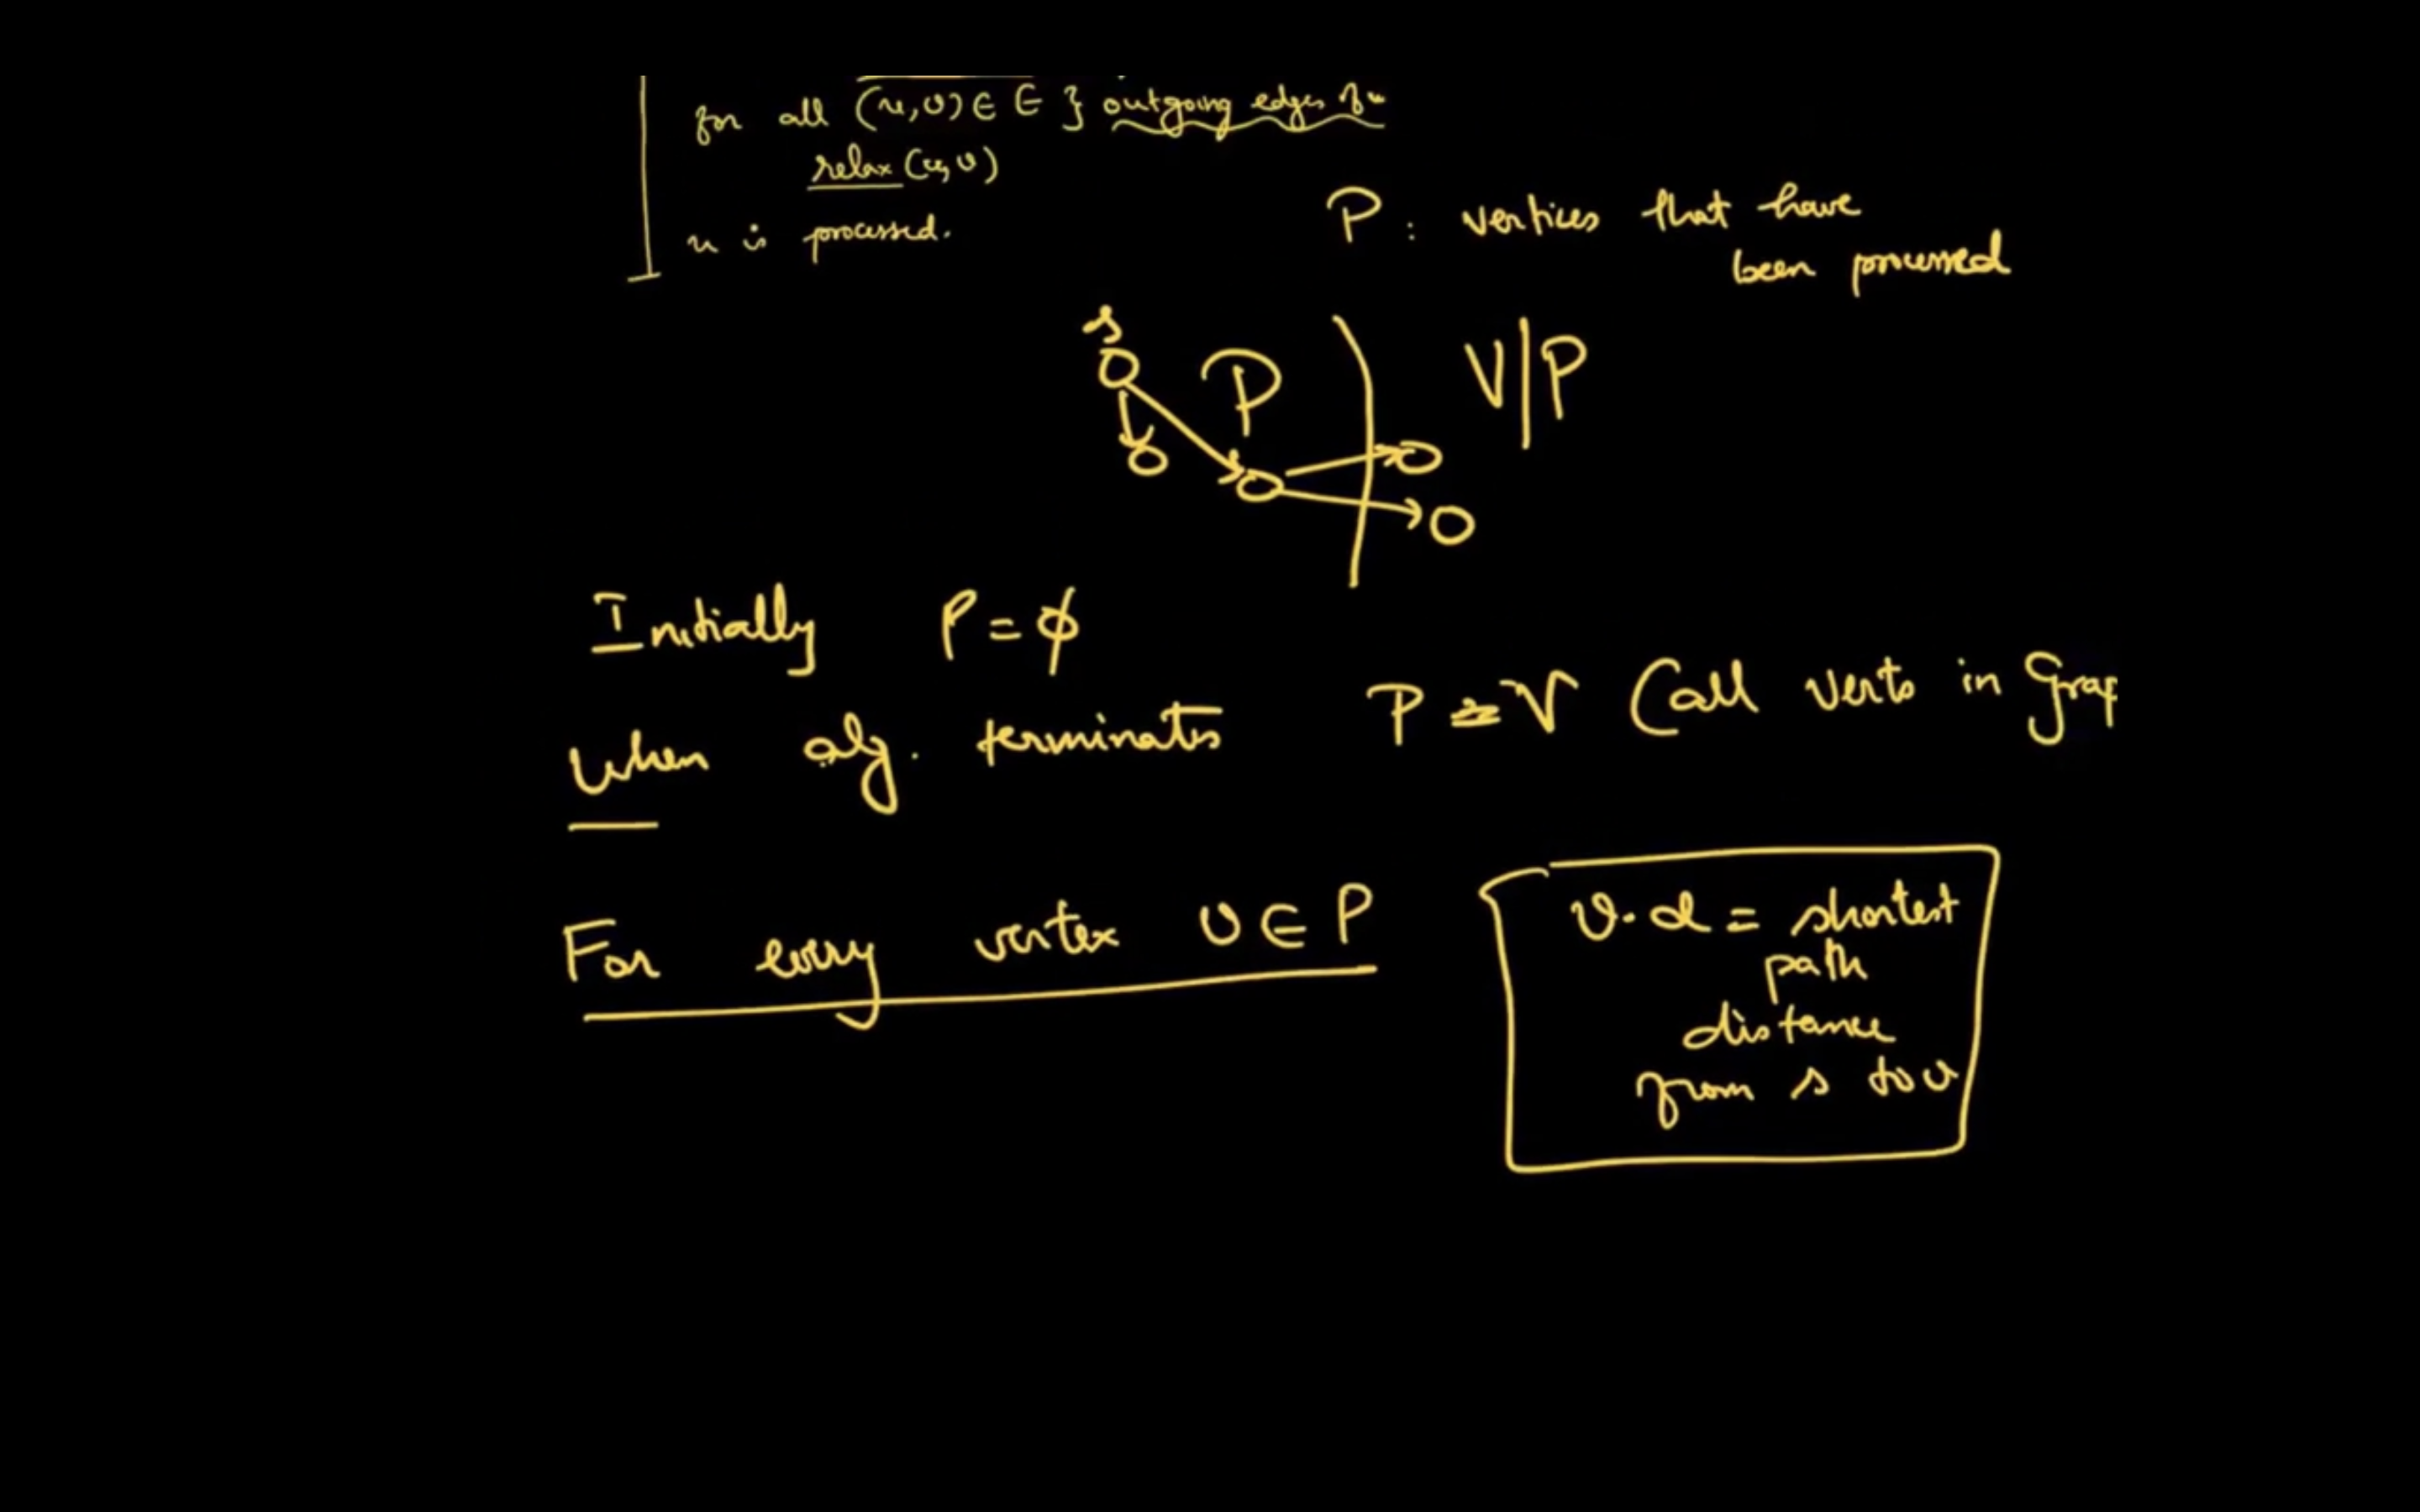 for all (u,v) ∈ E } outgoing edges of u
relax (u,v)
u is processed.
P : vertices that have
been processed
s
P V|P
Initially P = φ
When alg. terminates P = V (all verts in Grap
For every vertex v ∈ P
v.d = shortest
path
distance
from s to v